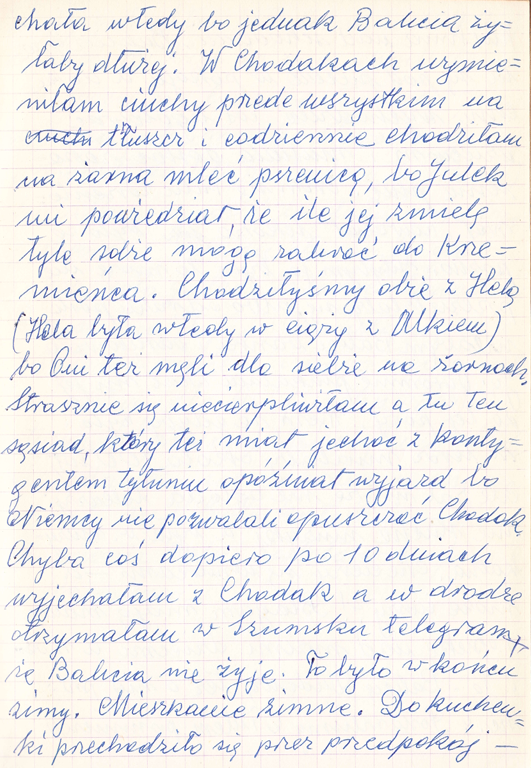 chała wtedy bo jednak Babcia ży=
łaby dłużej. W Chodakach wymie=
niłam ciuchy przede wszystkim na
tłuszcz i codziennie chodziłam
na żarna mleć pszenicę, bo Julek
mi powiedział, że ile jej zmielę
tyle sobie mogę zabrać do Krze=
mieńca. Chodziłyśmy obie z Helą
(Hela była wtedy w ciąży z Olkiem)
bo Oni też męli dla siebie na żarnach.
Strasznie się niecierpliwiłam a tu ten
sąsiad, który też miał jechać z konty=
gentem tytuniu opóźniał wyjazd bo
Niemcy nie pozwalali opuszczać Chodak.
Chyba coś dopiero po 10 dniach
wyjechałam z Chodak a w drodze
otrzymałam w Szumsku telegram
że Babcia nie żyje. To było w końcu
zimy. Mieszkanie zimne. Do kuchen=
ki przechodziło się przez przedpokój –